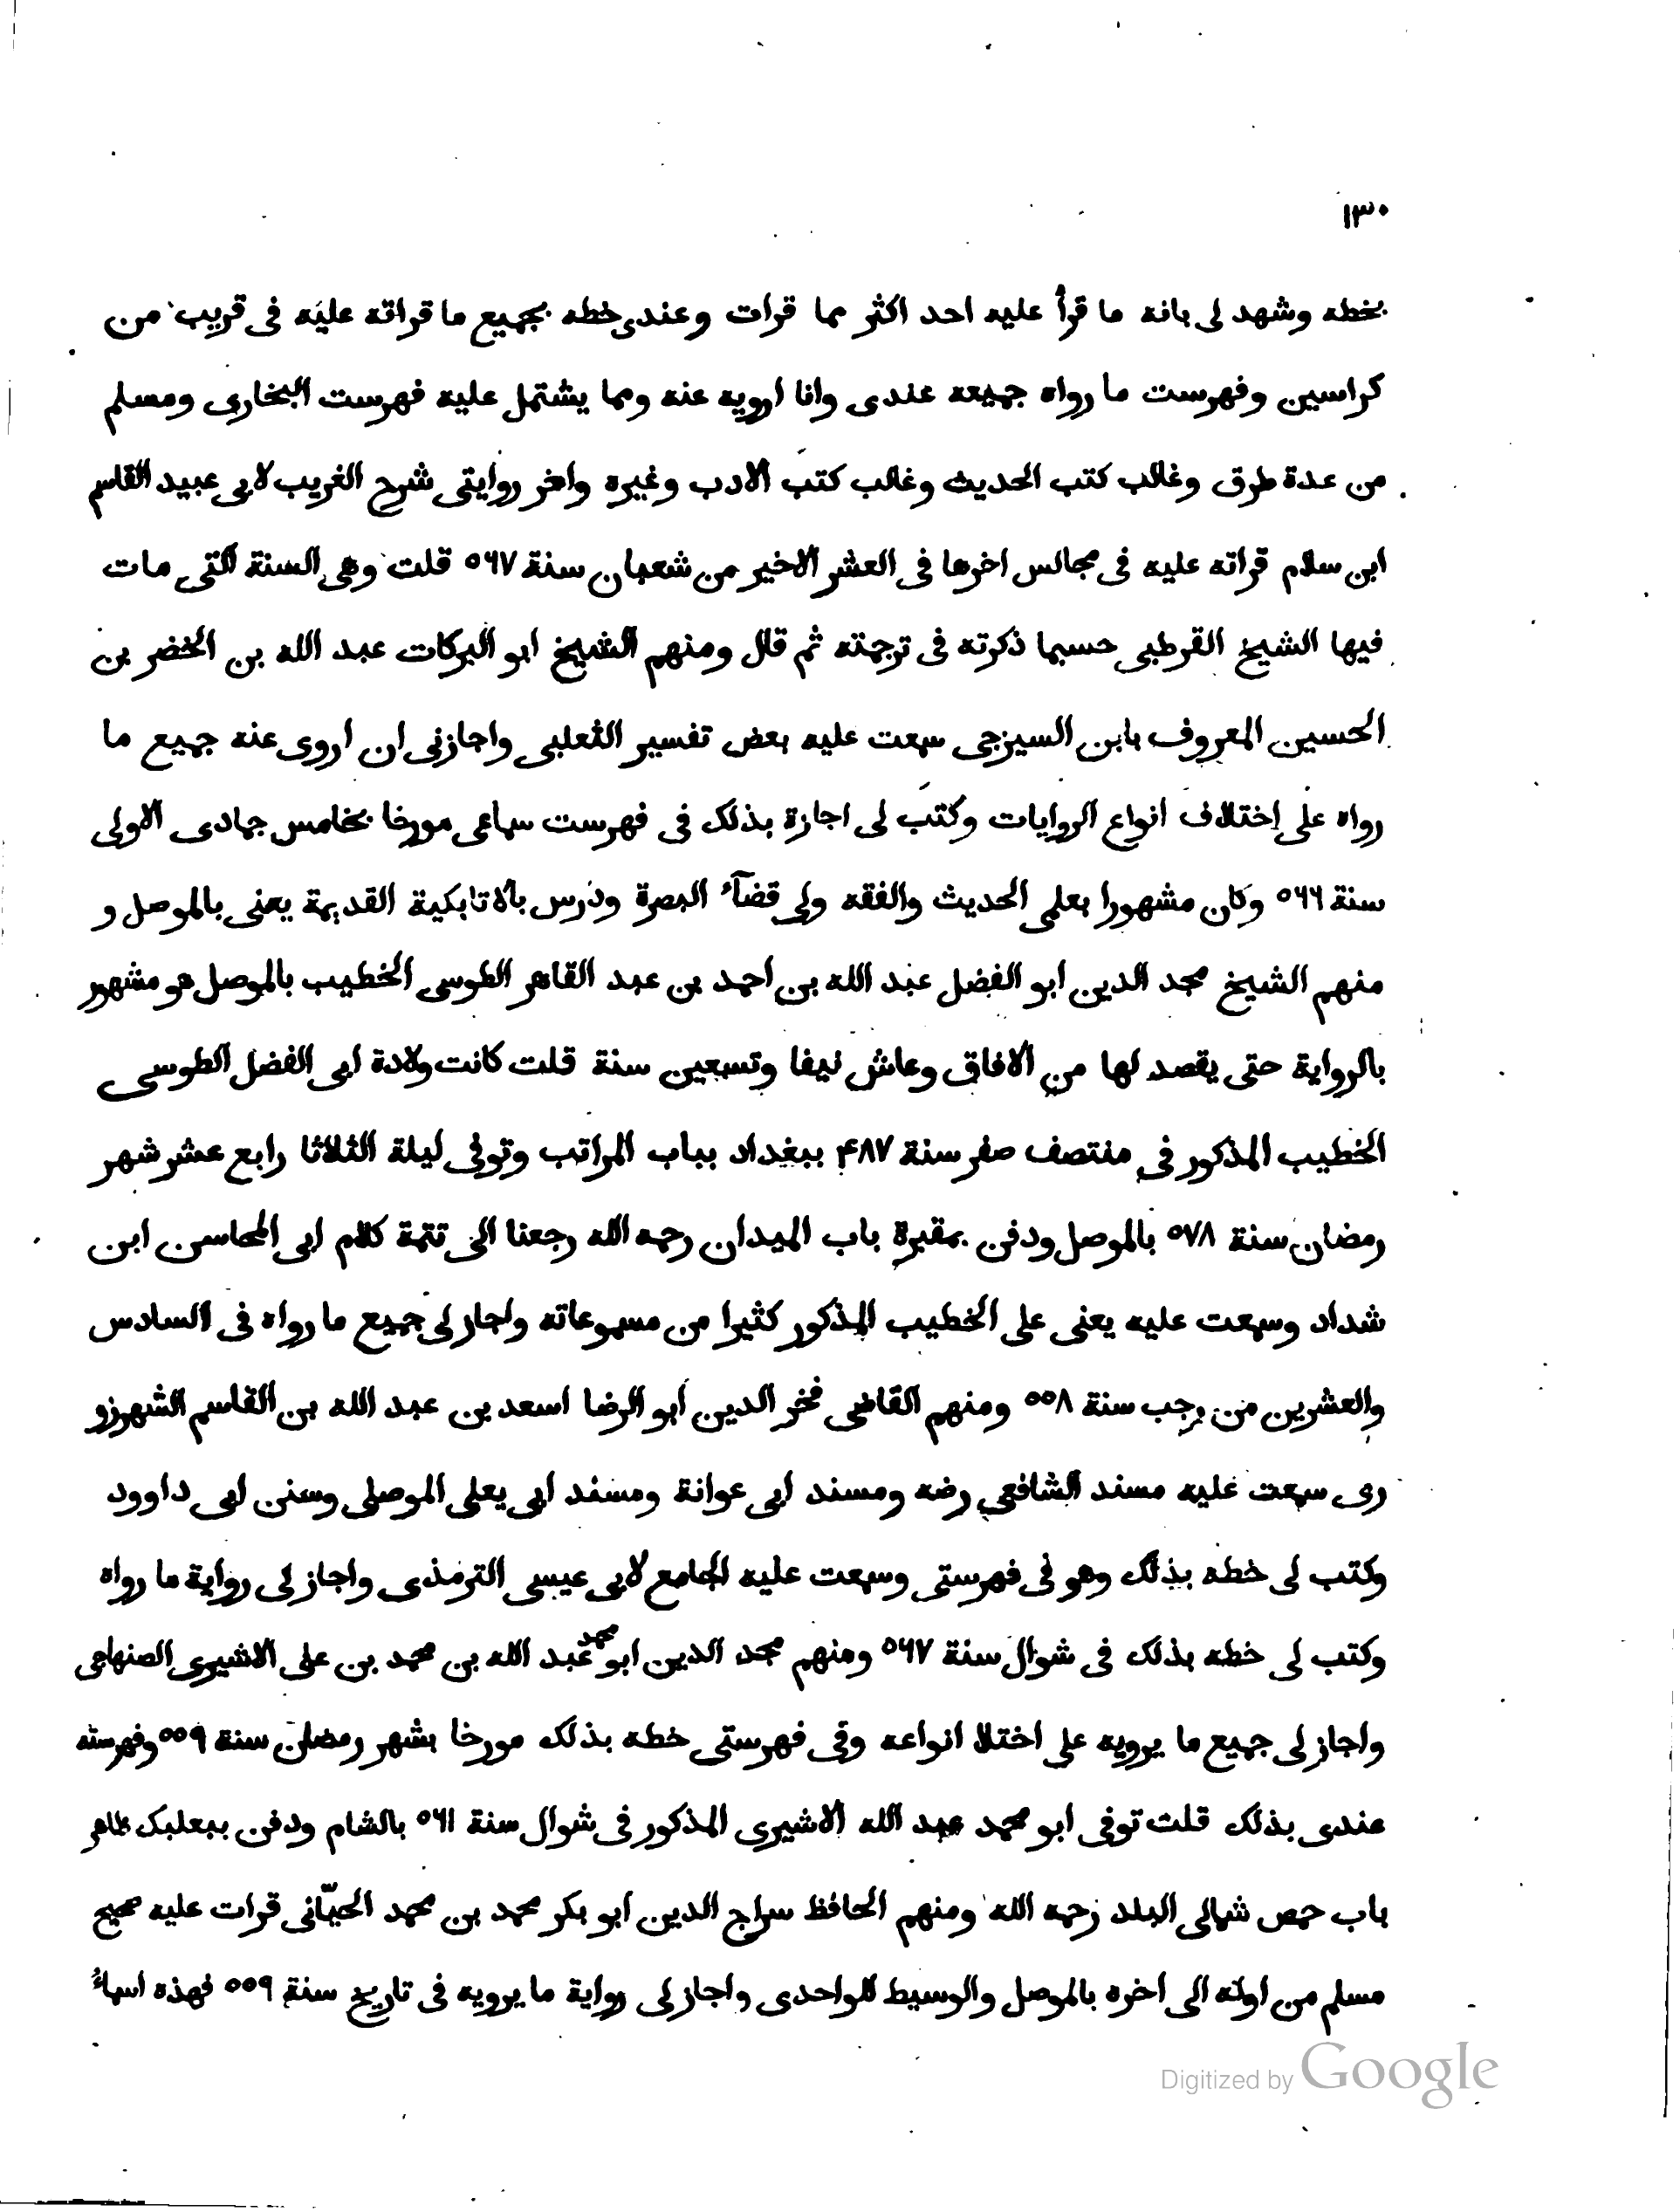 ١٣٠
بخطه وشهد لى بانه ما قرأ عليه احد اكثر مما قرات وعندى خطه بجميع ما قراته عليه فى قريب من
كراسين وفهرست ما رواه جميعه عندى وانا ارويه عنه ومما يشتمل عليه فهرست البخارى ومسلم
من عدة طرق وغالب كتب الحديث وغالب كتب الادب وغيره واخر روايتى شرح الغريب لابى عبيد القاسم
ابن سلام قراته عليه فى مجالس اخرها فى العشر الاخير من شعبان سنة ٥٦٧ قلت وهى السنة التى مات
فيها الشيخ القرطبى حسبما ذكرته فى ترجمته ثم قال ومنهم الشيخ ابو البركات عبد الله بن الخضر بن
الحسين المعروف بابن السيزجى سمعت عليه بعض تفسير الثعلبى واجازنى ان اروى عنه جميع ما
رواه على إختلاف انواع الروايات وكتب لى اجازة بذلك فى فهرست سماعى مورخا بخامس جمادى الاولى
سنة ٥٦٦ وكان مشهورا بعلمى الحديث والفقه ولى قضآء البصرة ودرس بالاتابكية القديمة يعنى بالموصل و
منهم الشيخ مجد الدين ابو الفضل عبد الله بن احمد بن عبد القاهر الطوسى الخطيب بالموصل هو مشهور
بالرواية حتى يقصد لها من الافاق وعاش نيفا وتسعين سنة قلت كانت ولادة ابى الفضل الطوسى
الخطيب المذكور فى منتصف صفر سنة ۴٨٧ ببغداد بباب المراتب وتوفى ليلة الثلاثا رابع عشر شهر
رمضان سنة ٥٧٨ بالموصل ودفن بمقبرة باب الميدان رحمه الله رجعنا الى تتمة كلام ابى المحاسن ابن
شداد وسمعت عليه يعنى على الخطيب المذكور كثيرا من مسموعاته واجاز لى جميع ما رواه فى السادس
والعشرين من رجب سنة ٥٥٨ ومنهم القاضى فخر الدين أبو الرضا اسعد بن عبد الله بن القاسم الشهرزو
رى سمعت عليه مسند الشافعى رضه ومسند ابى عوانة ومسند ابى يعلى الموصلى وسنن ابى داوود
وكتب لى خطه بذلك وهو فى فهرستى وسمعت عليه الجامع لابى عيسى الترمذى واجاز لى رواية ما رواه
وكتب لى خطه بذلك فى شوال سنة ٥٦٧ ومنهم مجد الدين ابو محمد عبد الله بن محمد بن على الاشيرى الصنهاجى
واجاز لى جميع ما يرويه على اختلا انواعه وفى فهرستى خطه بذلك مورخا بشهر رمضان سنة ٥٥٩ وفهرسته
عندى بذلك قلت توفى ابو محمد عبد الله الاشيرى المذكور فى شوال سنة ٥٦١ بالشام ودفن ببعلبك ظاهر
باب حمص شمالى البلد رحمه الله ومنهم الحافظ سراج الدين ابو بكر محمد بن محمد الحيّانى قرات عليه صحيح
مسلم من اوله الى اخره بالموصل والوسيط للواحدى واجاز لى رواية ما يرويه فى تاريخ سنة ٥٥٩ فهذه اسماءُ
Digitized by Google